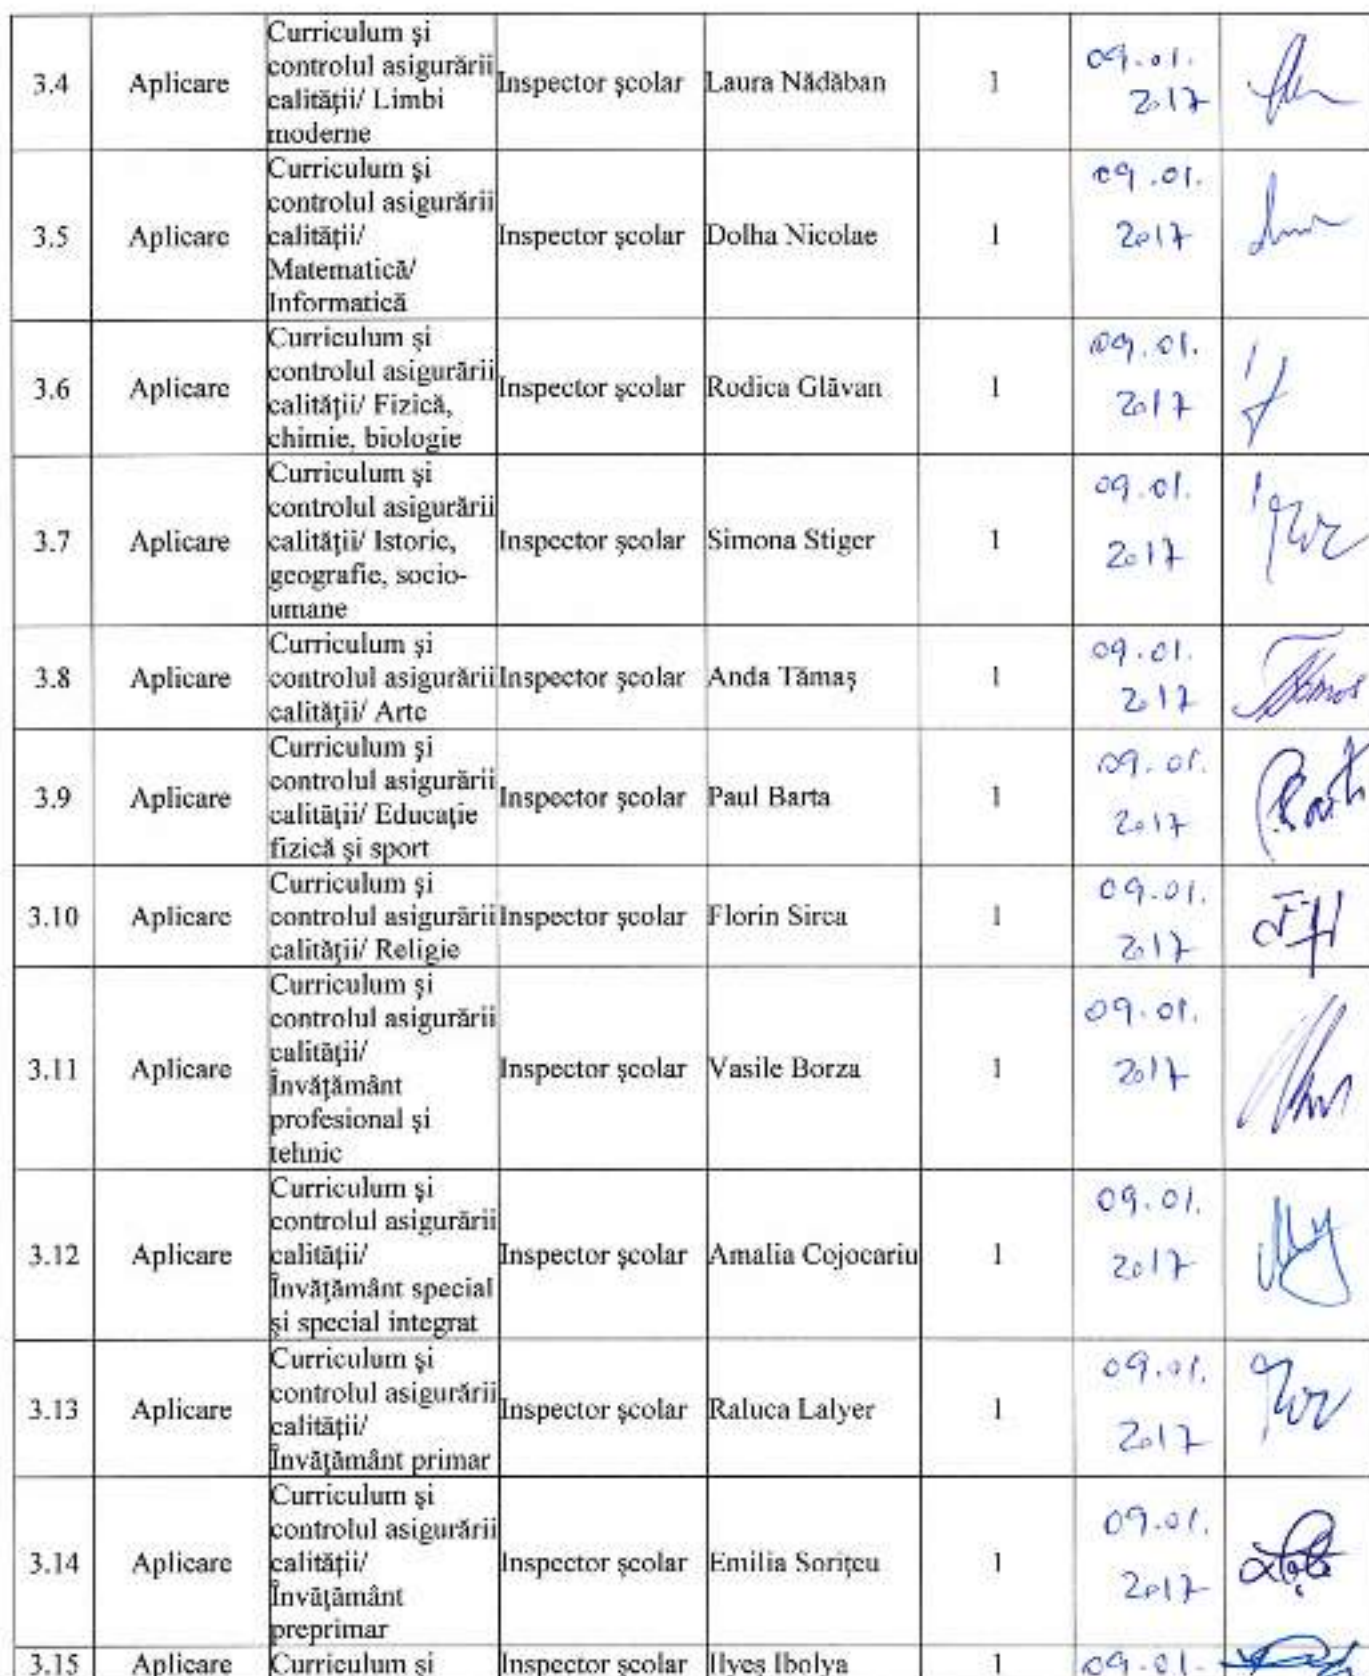 3.4 Aplicare Curriculum şi controlul asigurării calităţii/ Limbi moderne Inspector şcolar Laura Nădăban 1 09.01. 2017
3.5 Aplicare Curriculum şi controlul asigurării calităţii/ Matematică/ Informatică Inspector şcolar Dolha Nicolae 1 09.01. 2017
3.6 Aplicare Curriculum şi controlul asigurării calităţii/ Fizică, chimie, biologie Inspector şcolar Rodica Glăvan 1 09.01. 2017
3.7 Aplicare Curriculum şi controlul asigurării calităţii/ Istorie, geografie, socio-umane Inspector şcolar Simona Stiger 1 09.01. 2017
3.8 Aplicare Curriculum şi controlul asigurării calităţii/ Arte Inspector şcolar Anda Tămaş 1 09.01. 2017
3.9 Aplicare Curriculum şi controlul asigurării calităţii/ Educaţie fizică şi sport Inspector şcolar Paul Barta 1 09.01. 2017
3.10 Aplicare Curriculum şi controlul asigurării calităţii/ Religie Inspector şcolar Florin Sirca 1 09.01. 2017
3.11 Aplicare Curriculum şi controlul asigurării calităţii/ Învăţământ profesional şi tehnic Inspector şcolar Vasile Borza 1 09.01. 2017
3.12 Aplicare Curriculum şi controlul asigurării calităţii/ Învăţământ special şi special integrat Inspector şcolar Amalia Cojocariu 1 09.01. 2017
3.13 Aplicare Curriculum şi controlul asigurării calităţii/ Învăţământ primar Inspector şcolar Raluca Lalyer 1 09.01. 2017
3.14 Aplicare Curriculum şi controlul asigurării calităţii/ Învăţământ preprimar Inspector şcolar Emilia Soriţeu 1 09.01. 2017
3.15 Aplicare Curriculum şi Inspector şcolar Ilyeş Ibolya 1 09.01.